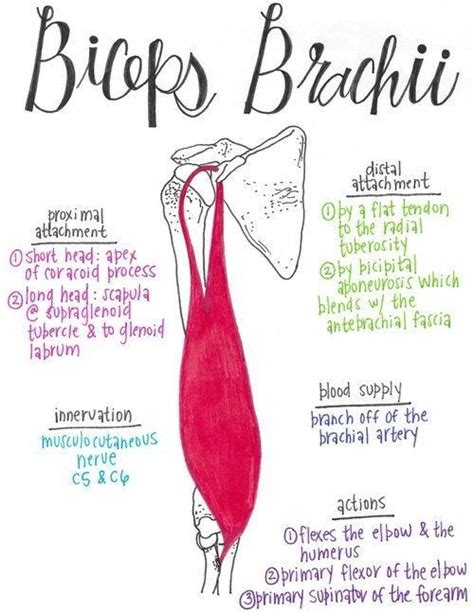 Biceps Brachii
proximal
attachment
① short head: apex
of coracoid process
② long head: scapula
@ supraglenoid
tubercle & to glenoid
labrum
distal
attachment
① by a flat tendon
to the radial
tuberosity
② by bicipital
aponeurosis which
blends w/ the
antebrachial fascia
innervation
musculocutaneous
nerve
C5 & C6
blood supply
branch off of the
brachial artery
actions
① flexes the elbow & the
humerus
② primary flexor of the elbow
③ primary supinator of the forearm